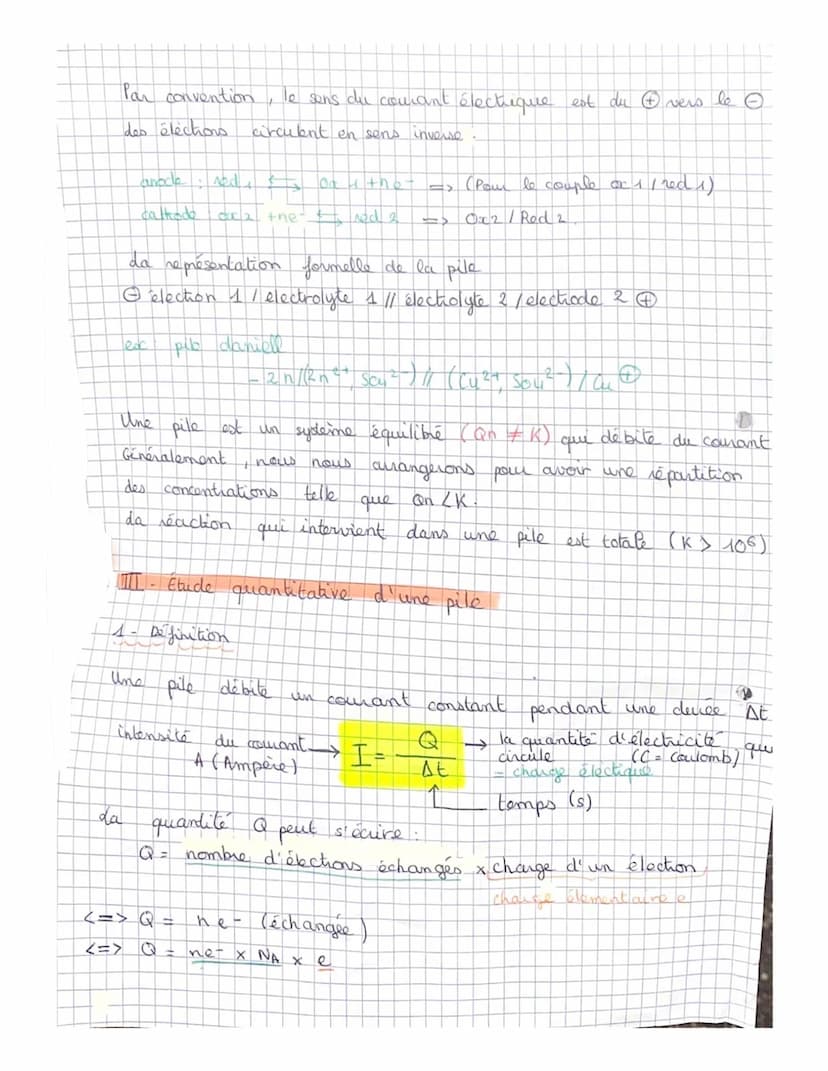 Par convention, le sens du courant électrique est du ⊕ vers le ⊖
des éléctrons circulent en sens inverse.
anode : red 1 ⇆ ox 1 + ne- => (Pour le couple ox 1 / red 1)
cathode ox 2 + ne- ⇆ red 2 => Ox 2 / Red 2.
da représentation formelle de la pile
⊖ élection 1 / electrolyte 1 // électrolyte 2 / electrode 2 ⊕
ex: pile daniell
- Zn/(Zn²⁺, So4²⁻) // (Cu²⁺, So4²⁻) / Cu ⊕
Une pile est un système équilibré (Qn ≠ K) qui débite du courant
Généralement, nous nous arrangerons pour avoir une répartition
des concentrations telle que Qn < K.
da réaction qui intervient dans une pile est totale (K > 10⁶)
III - Étude quantitative d'une pile
1 - Définition
Une pile débite un courant constant pendant une durée Δt
intensité du courant → I = Q / Δt → la quantité d'électricité qui
A (Ampère) circule (C = Coulomb)
= charge électrique
temps (s)
da quantité Q peut s'écrire :
Q = nombre d'éléctrons échangés x charge d'un éléctron
charge élémentaire e
<=> Q = ne- (échangée)
<=> Q = ne- x NA x e